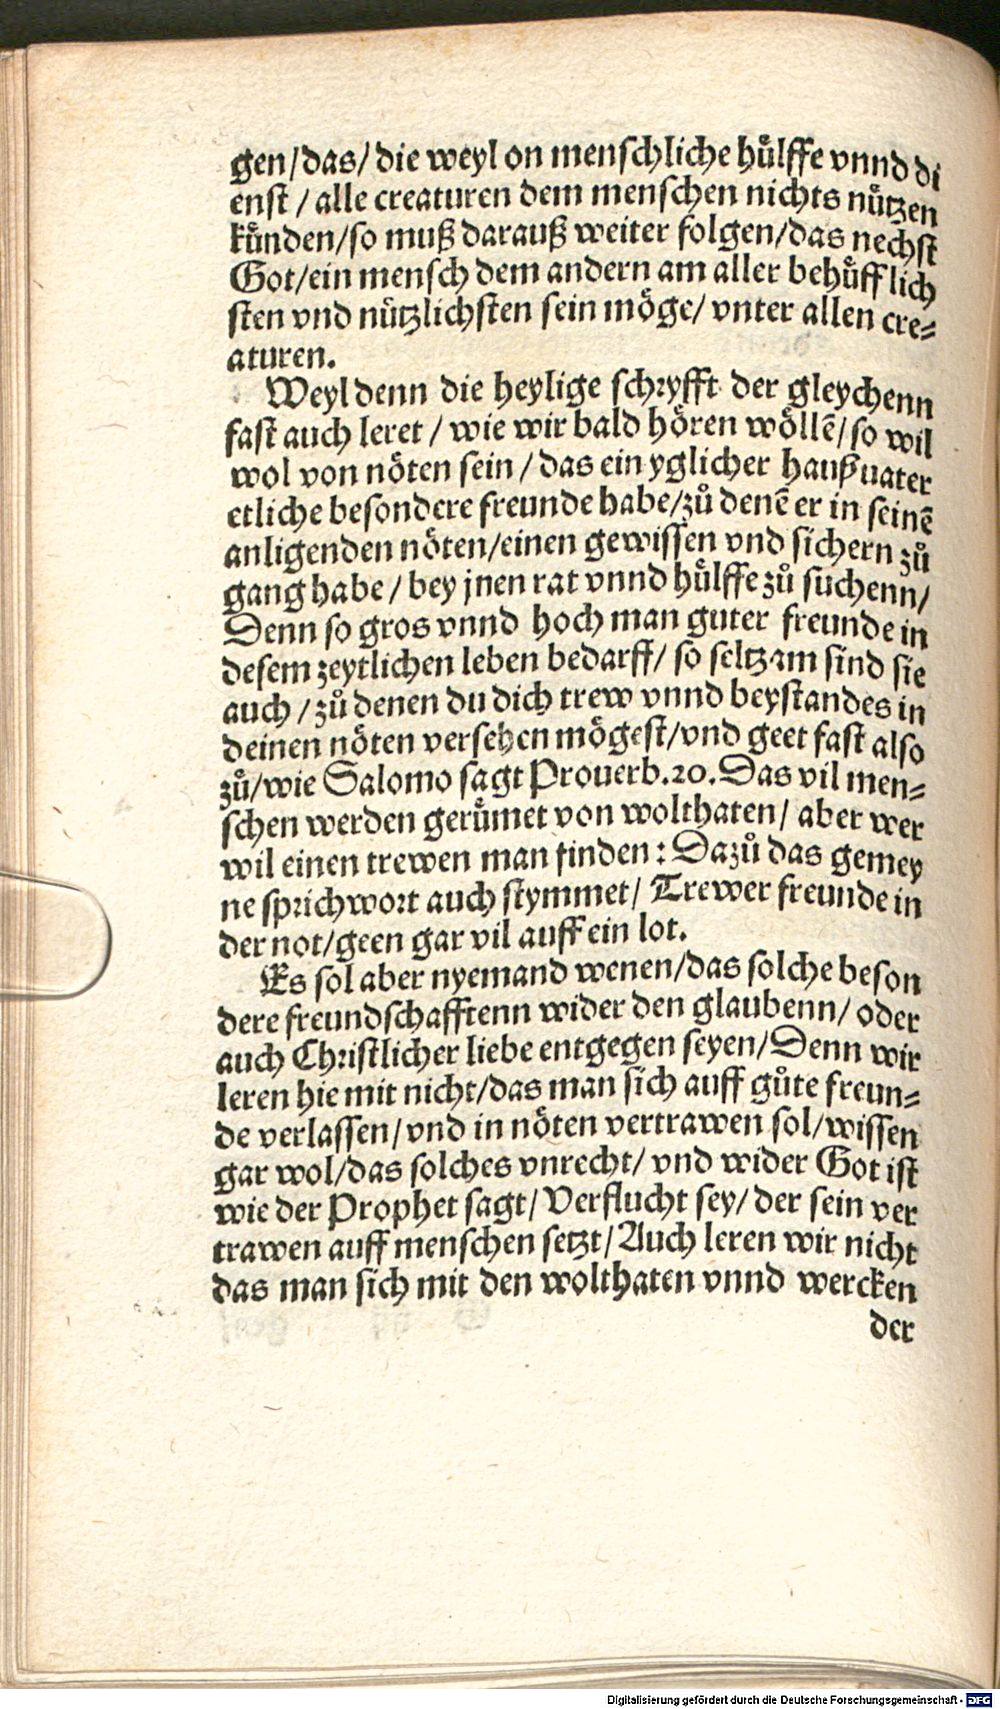 gen/das/ die weyl on menschliche hůlffe vnnd di
enst / alle creaturen dem menschen nichts nůtzen
kůnden/so muß darauß weiter folgen/das nechst
Got/ein mensch dem andern am aller behůfflich
sten vnd nůtzlichsten sein möge/ vnter allen cre=
aturen.
Weyl denn die heylige schryfft der gleychenn
fast auch leret / wie wir bald hören wöllē/so wil
wol von nöten sein / das ein yglicher haußuater
etliche besondere freunde habe/zů denē er in seinē
anligenden nöten/einen gewissen vnd sichern zů
gang habe / bey jnen rat vnnd hůlffe zů suchenn/
Denn so gros vnnd hoch man guter freunde in
desem zeytlichen leben bedarff/ so seltzam sind sie
auch / zů denen du dich trew vnnd beystandes in
deinen nöten versehen mögest/vnd geet fast also
zů/wie Salomo sagt Prouerb.20. Das vil men=
schen werden gerůmet von wolthaten/ aber wer
wil einen trewen man finden: Dazů das gemey
ne sprichwort auch stymmet/ Trewer freunde in
der not/geen gar vil auff ein lot.
Es sol aber nyemand wenen/das solche beson
dere freundschafftenn wider den glaubenn/ oder
auch Christlicher liebe entgegen seyen/Denn wir
leren hie mit nicht/das man sich auff gůte freun=
de verlassen/vnd in nöten vertrawen sol/wissen
gar wol/das solches vnrecht/ vnd wider Got ist
wie der Prophet sagt/ Verflucht sey/ der sein ver
trawen auff menschen setzt/ Auch leren wir nicht
das man sich mit den wolthaten vnnd wercken
der
Digitalisierung gefördert durch die Deutsche Forschungsgemeinschaft - DFG